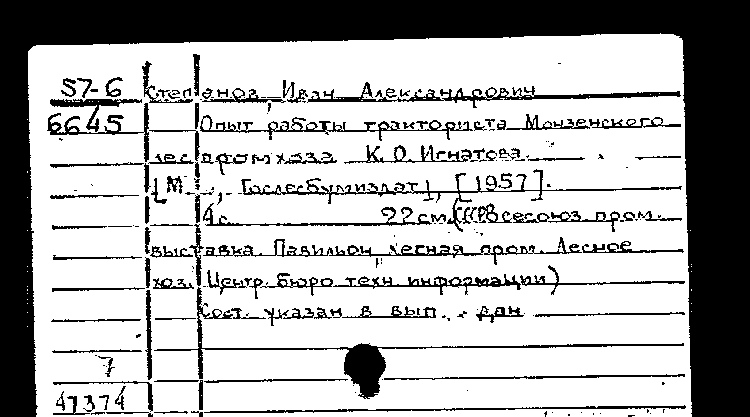 57-6 Степанов, Иван Александрович
6645 Опыт работы тракториста Монзенского
леспромхоза К. О. Игнатова.
[М., Гослесбумиздат], [1957].
4 с. 22 см. (СССР. Всесоюз. пром.
выставка. Павильон "Лесная пром. Лесное
хоз. Центр. бюро техн. информации)
Сост. указан в вып. дан
7
47374